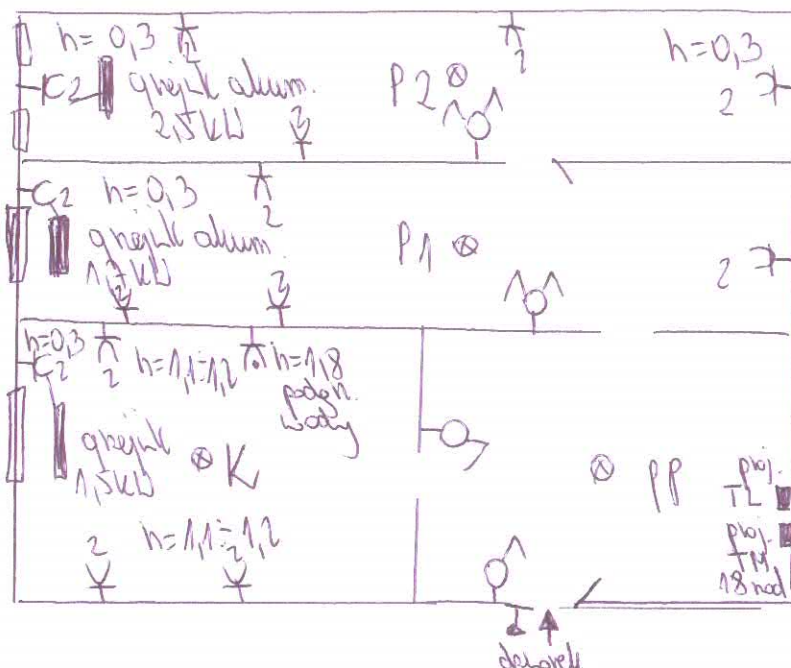 h=0,3
2
2
h=0,3
C2
grzejnik akum.
2,5kW
P2
2
2
C2
h=0,3
2
grzejnik akum.
1,7kW
P1
2
2
2
h=0,3
C2
2
h=1,1÷1,2
h=1,8
podgrz.
wody
grzejnik
1,5kW
K
PP
proj.
TL
proj.
TM
18mod
2
h=1,1÷1,2
2
dzwonek